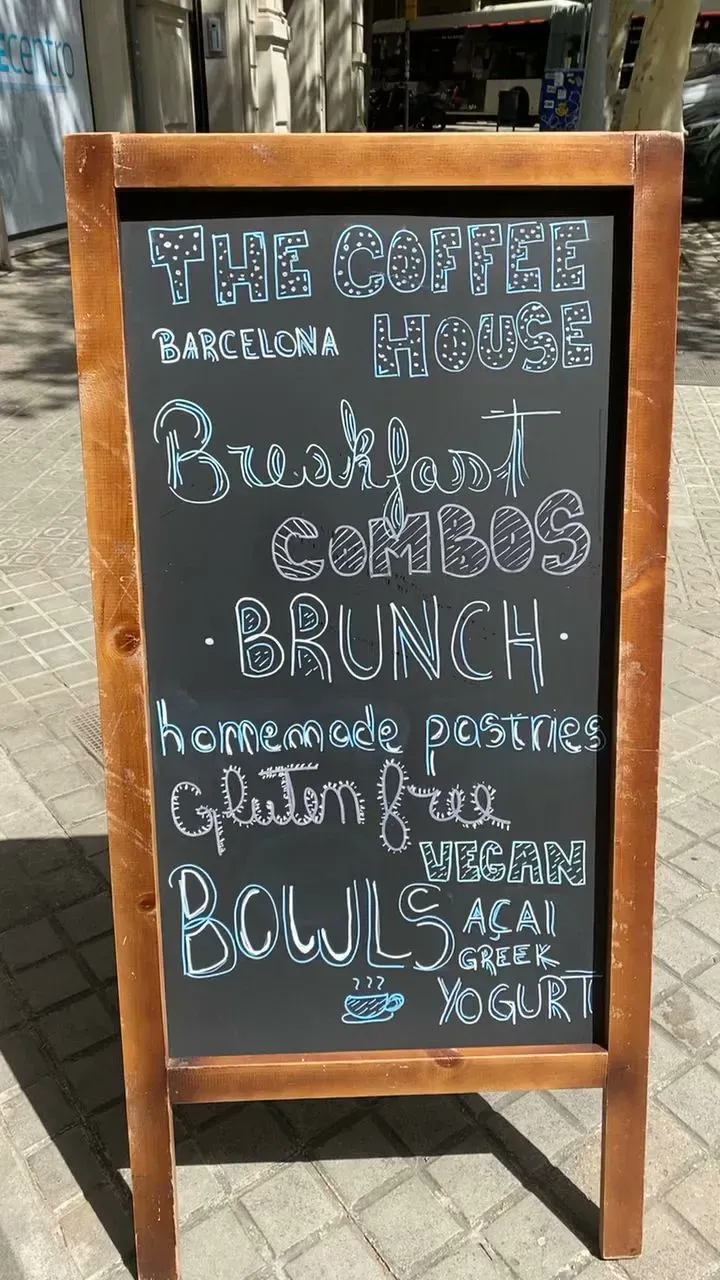 centro
THE COFFEE
BARCELONA HOUSE
Breakfast
COMBOS
· BRUNCH ·
homemade pastries
Gluten free
VEGAN
BOWLS AÇAI
GREEK
YOGURT